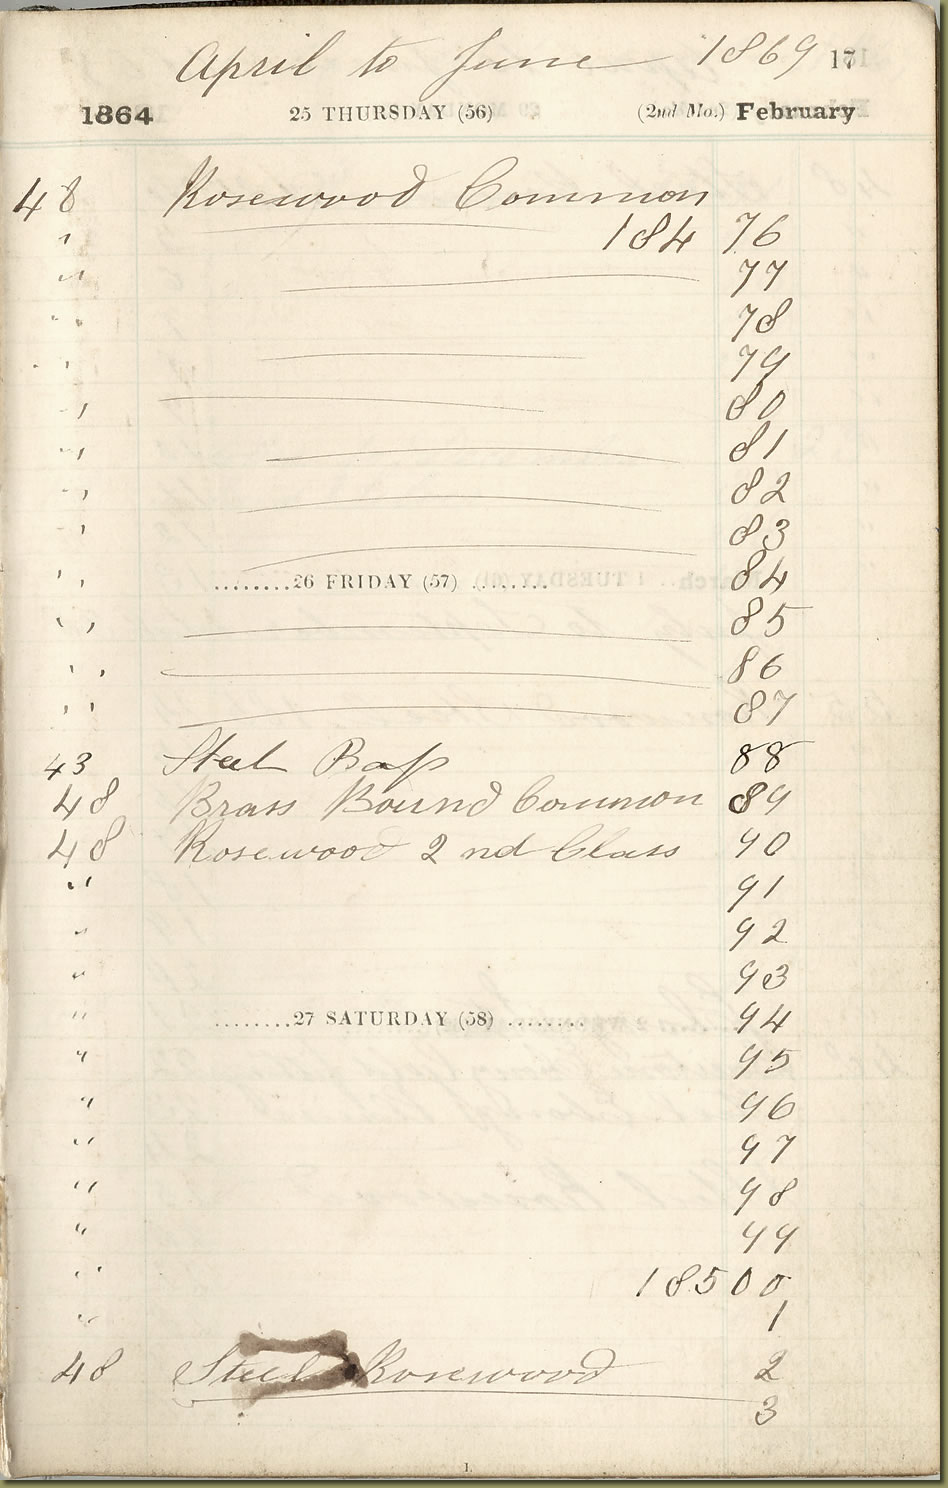 April to June 1869 17
1864 25 THURSDAY (56) (2nd Mo.) February
48 Rosewood Common
" 184 76
" 77
" 78
" 79
" 80
" 81
" 82
" 83
" ........26 FRIDAY (57) ........ 84
" 85
" 86
" 87
43 Steel Bass 88
48 Brass Bound Common 89
48 Rosewood 2nd Class 90
" 91
" 92
" 93
" ........27 SATURDAY (58) ........ 94
" 95
" 96
" 97
" 98
" 99
" 18500
" 1
48 Steel Rosewood 2
3